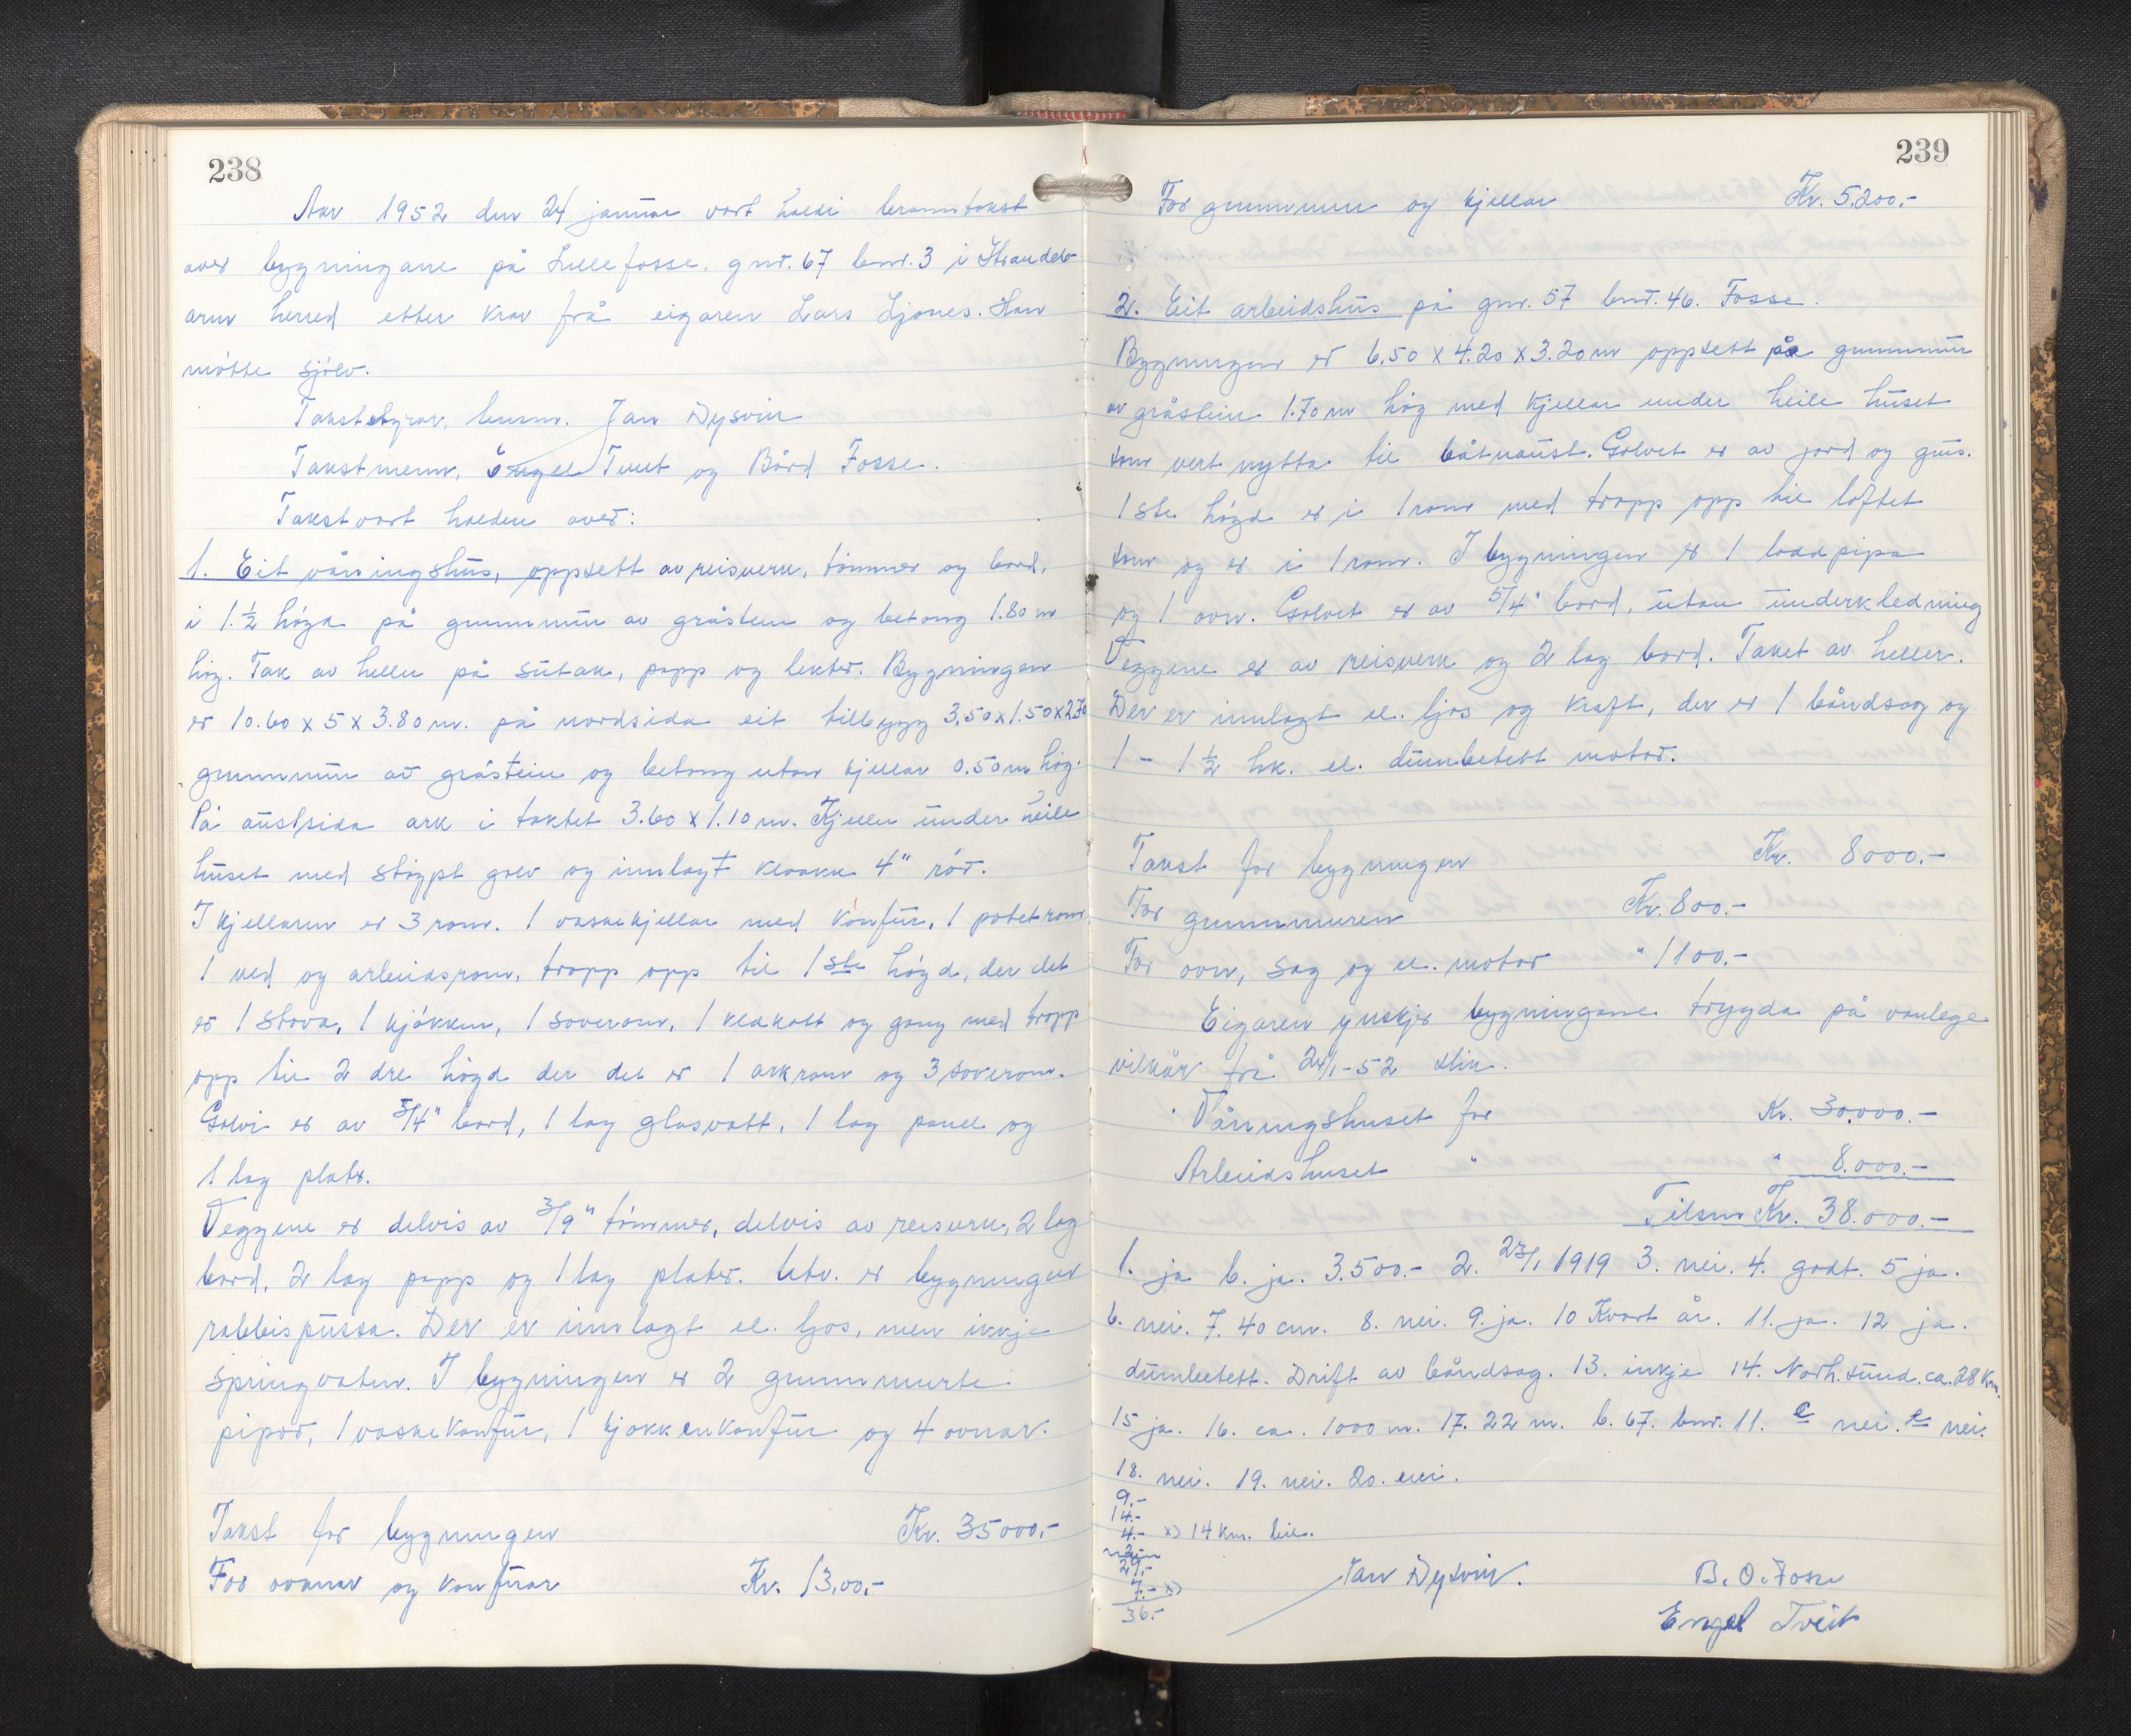 238
Aar 1952 den 24 januar vart haldi branntakst
over bygningane på Lillefosse. gnr. 67 bnr. 3 i Strandeb-
arm herred etter krav frå eigaren Lars Ljones. Han
møtte sjølv.
Takststyrar, lensm. Jan Dysvin
Takstmenn, Engel Tveit og Bård Fosse.
Takst vart halden over:
1. Eit våningshus, oppsett av reisverk, tømmer og bord,
i 1.½ høgd på grunnmur av gråstein og betong 1.80 m
høg. Tak av heller på sutak, papp og lekter. Bygningen
er 10.60 x 5 x 3.80 m. på nordsida eit tilbygg 3.50x1.50x2.70
grunnmur av gråstein og betong utan kjellar 0.50 m høg.
På austsida ark i taket 3.60 x 1.10 m. Kjeller under heile
huset med støypt golv og innlagt kloakk 4" rør.
I kjellaren er 3 rom. 1 vaskekjellar med komfur, 1 potetrom
1 ved og arbeidsrom, tropp opp til 1ste høgd, der det
er 1 stova, 1 kjøkken, 1 soverom, 1 kledkott og gang med tropp
opp til 2 dre høgd der det er 1 arkrom og 3 soverom.
Golvi er av 5/4" bord, 1 lag glasvatt, 1 lag panel og
1 lag plater.
Veggene er delvis av 3/9" tømmer, delvis av reisverk, 2 lag
bord, 2 lag papp og 1 lag plater. Utv. er bygningen
rabbispussa. Der er innlagt el. ljos, men ikkje
springvatn. I bygningen er 2 grunnmurte
pipor, 1 vaskekomfur, 1 kjøkkenkomfur og 4 ovnar.
Takst for bygningen Kr. 35000.-
For ovnar og komfurar Kr. 13,00.-
239
For grunnmur og kjellar Kr. 5.200.-
2. Eit arbeidshus på gnr. 57 bnr. 46. Fosse.
Bygningen er 6.50 x 4.20 x 3.20 m oppsett på grunnmur
av gråstein 1.70 m høg med kjellar under heile huset
som vert nytta til båtnaust. Golvet er av jord og grus.
1ste høgd er i 1 rom med tropp opp til loftet
som og er i 1 rom. I bygningen er 1 loddpipa
og 1 ovn. Golvet er av 5/4" bord, utan underkledning
Veggene er av reisverk og 2 lag bord. Taket av heller.
Der er innlagt el. ljos og kraft, der er 1 båndsag og
1 - 1½ hk. el. dumbetett motor.
Takst for bygningen Kr. 8000.-
For grunnmuren Kr. 800.-
For ovn, sag og el. motor " 1100.-
Eigaren ynskjer bygningane trygda på vanlege
vilkår frå 24/1-52 slik.
Våningshuset for Kr. 30.000.-
Arbeidshuset " " 8.000.-
Tilsm Kr. 38.000.-
1. ja b. ja. 3.500.- 2. 23/1 1919 3. nei. 4. godt. 5 ja.
6. nei. 7. 40 cm. 8. nei. 9. ja. 10 Kvart år. 11. ja. 12 ja.
dumbetett. Drift av båndsag. 13. inkje 14. Norh.sund. ca. 28 km.
15 ja. 16. ca. 1000 m. 17. 22 m. b. 67. bnr. 11. c nei. e nei.
18. nei. 19. nei. 20. nei.
9.-
14.-
4.- x) 14 km. bil.
2.-
29.-
7.- x)
36.-
Jan Dysvin. B. O. Fosse
Engel Tveit